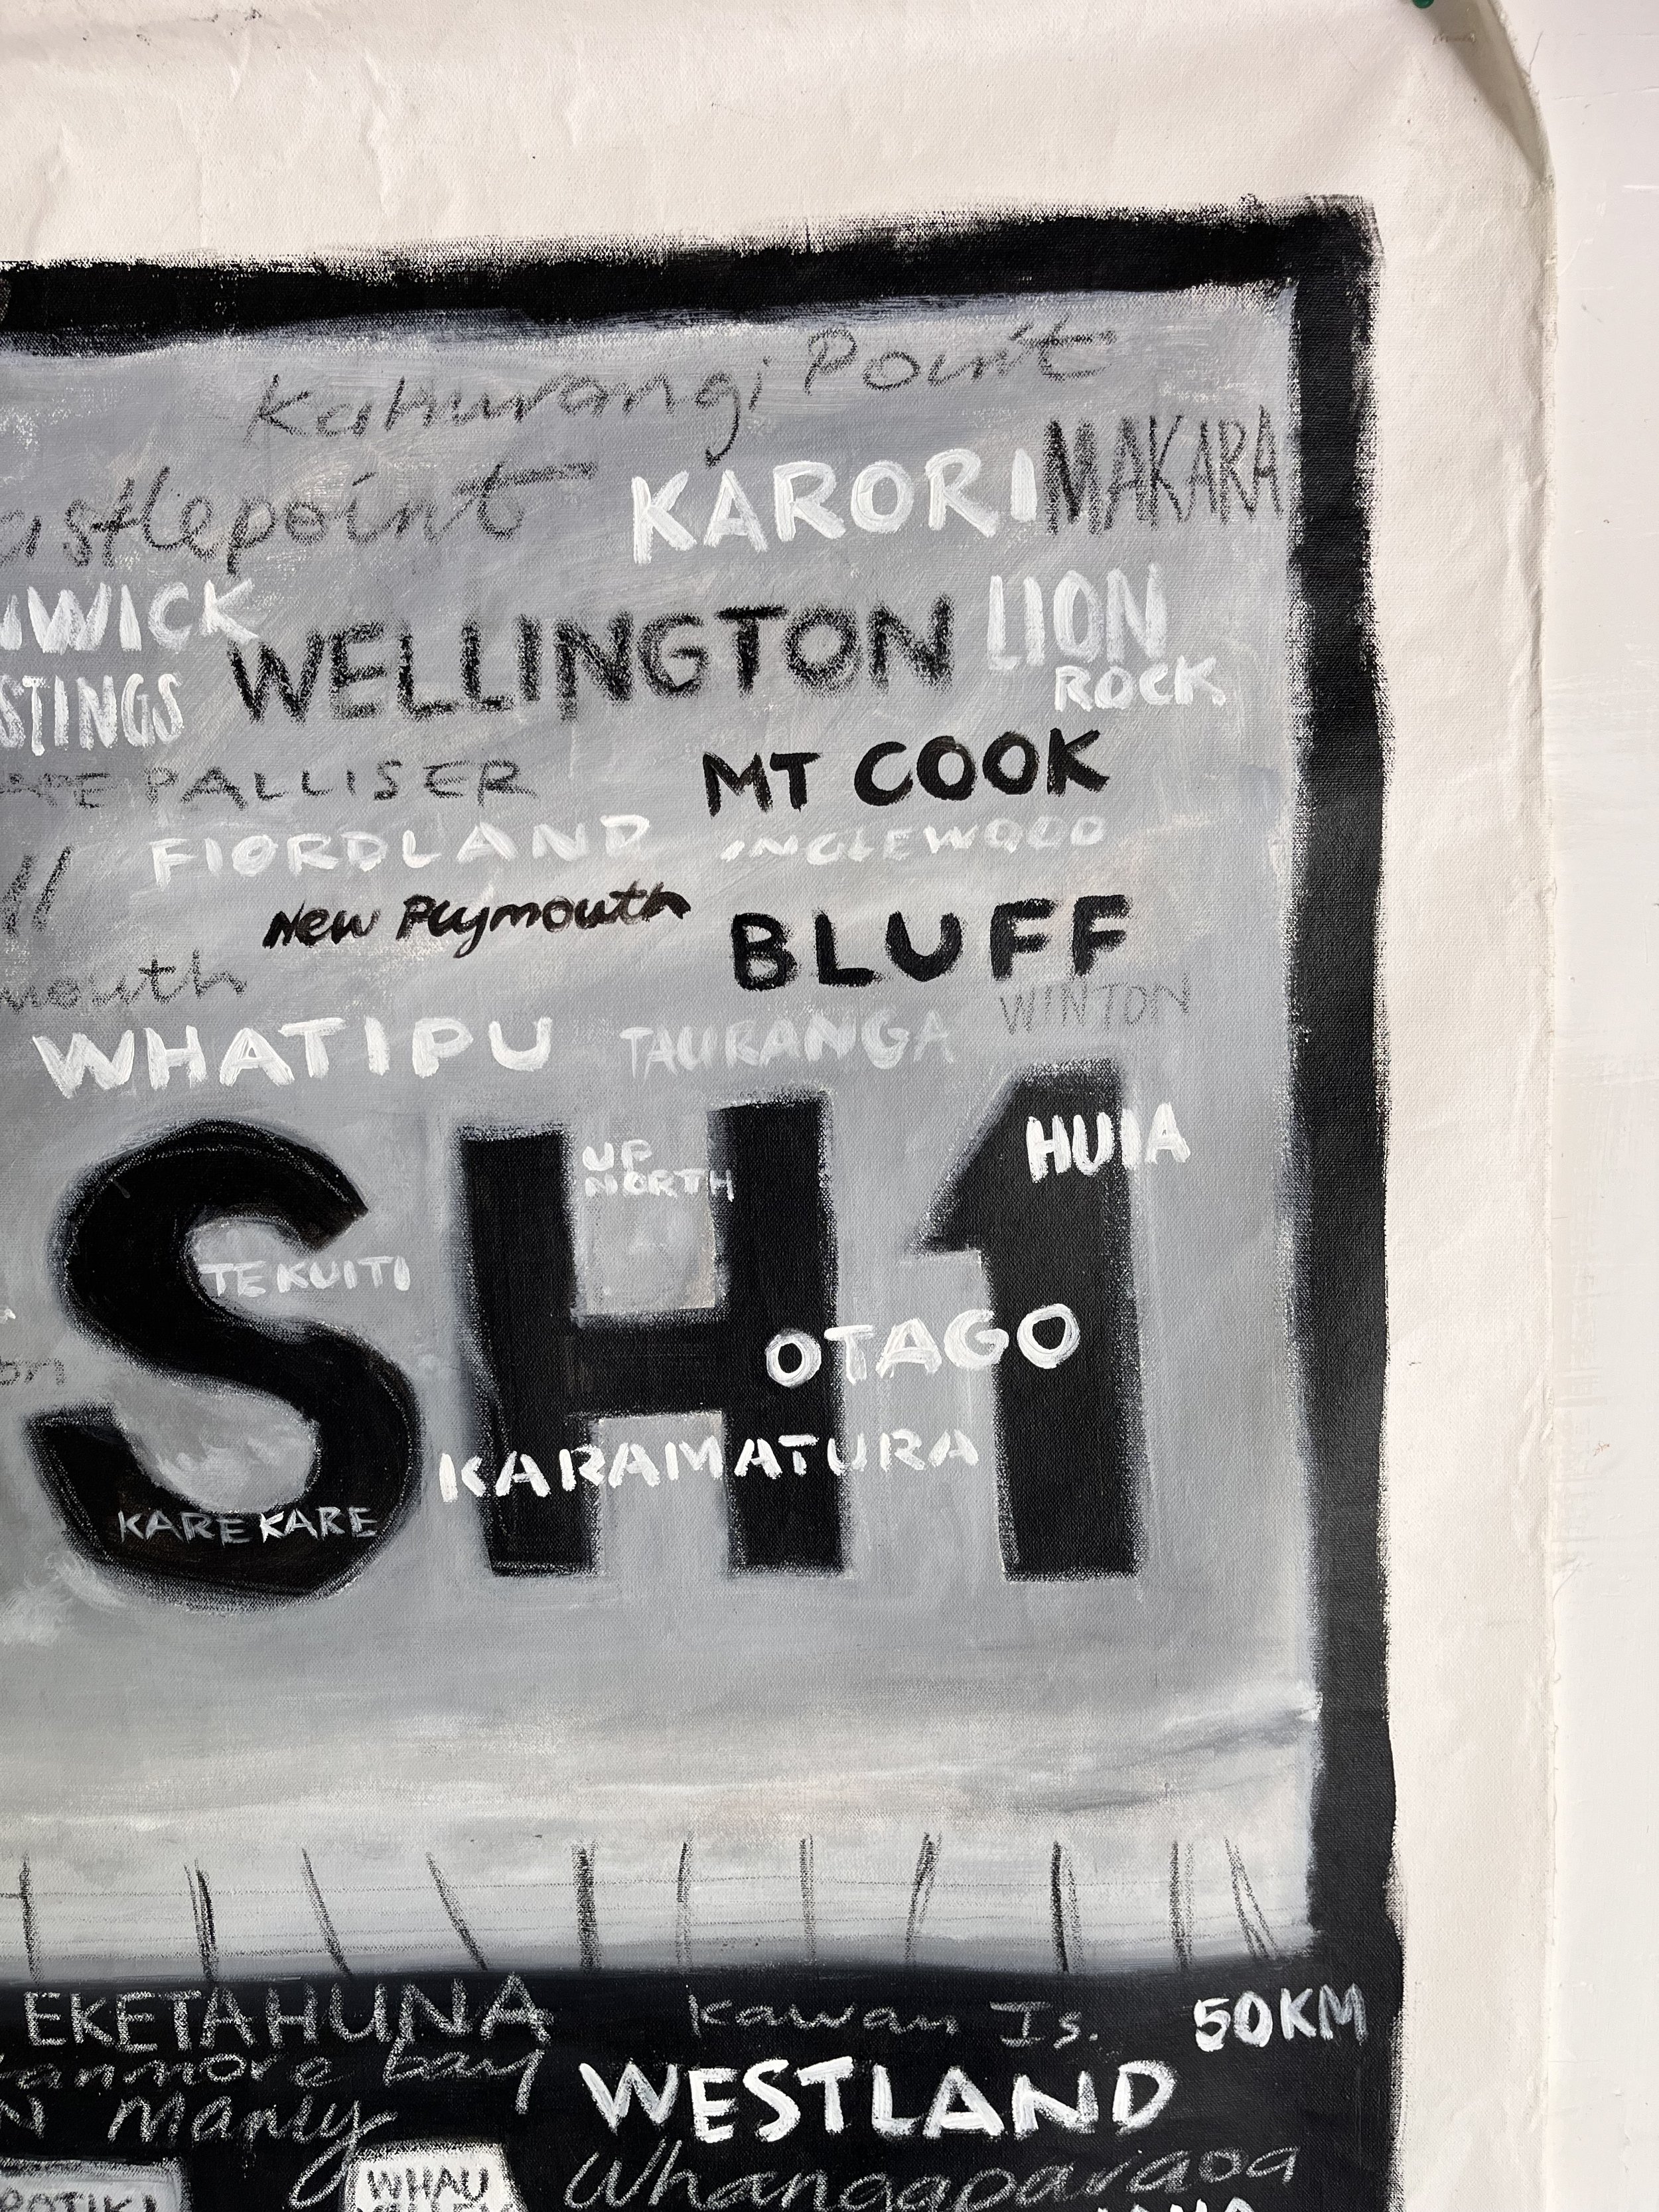 Kahurangi Point
KARORI MAKARA
astlepoint
WICK
WELLINGTON
LION
ROCK
STINGS
MT COOK
PALLISER
FIORDLAND
INGLEWOOD
New Plymouth
BLUFF
mouth
WINTON
WHATIPU
TAURANGA
SH1
HUIA
UP
NORTH
TE KUITI
OTAGO
on
KARAMATURA
KARE KARE
EKETAHUNA
Kawau Is.
50KM
anmore bay
WESTLAND
N Manly
Whangaparaoa
WHAU